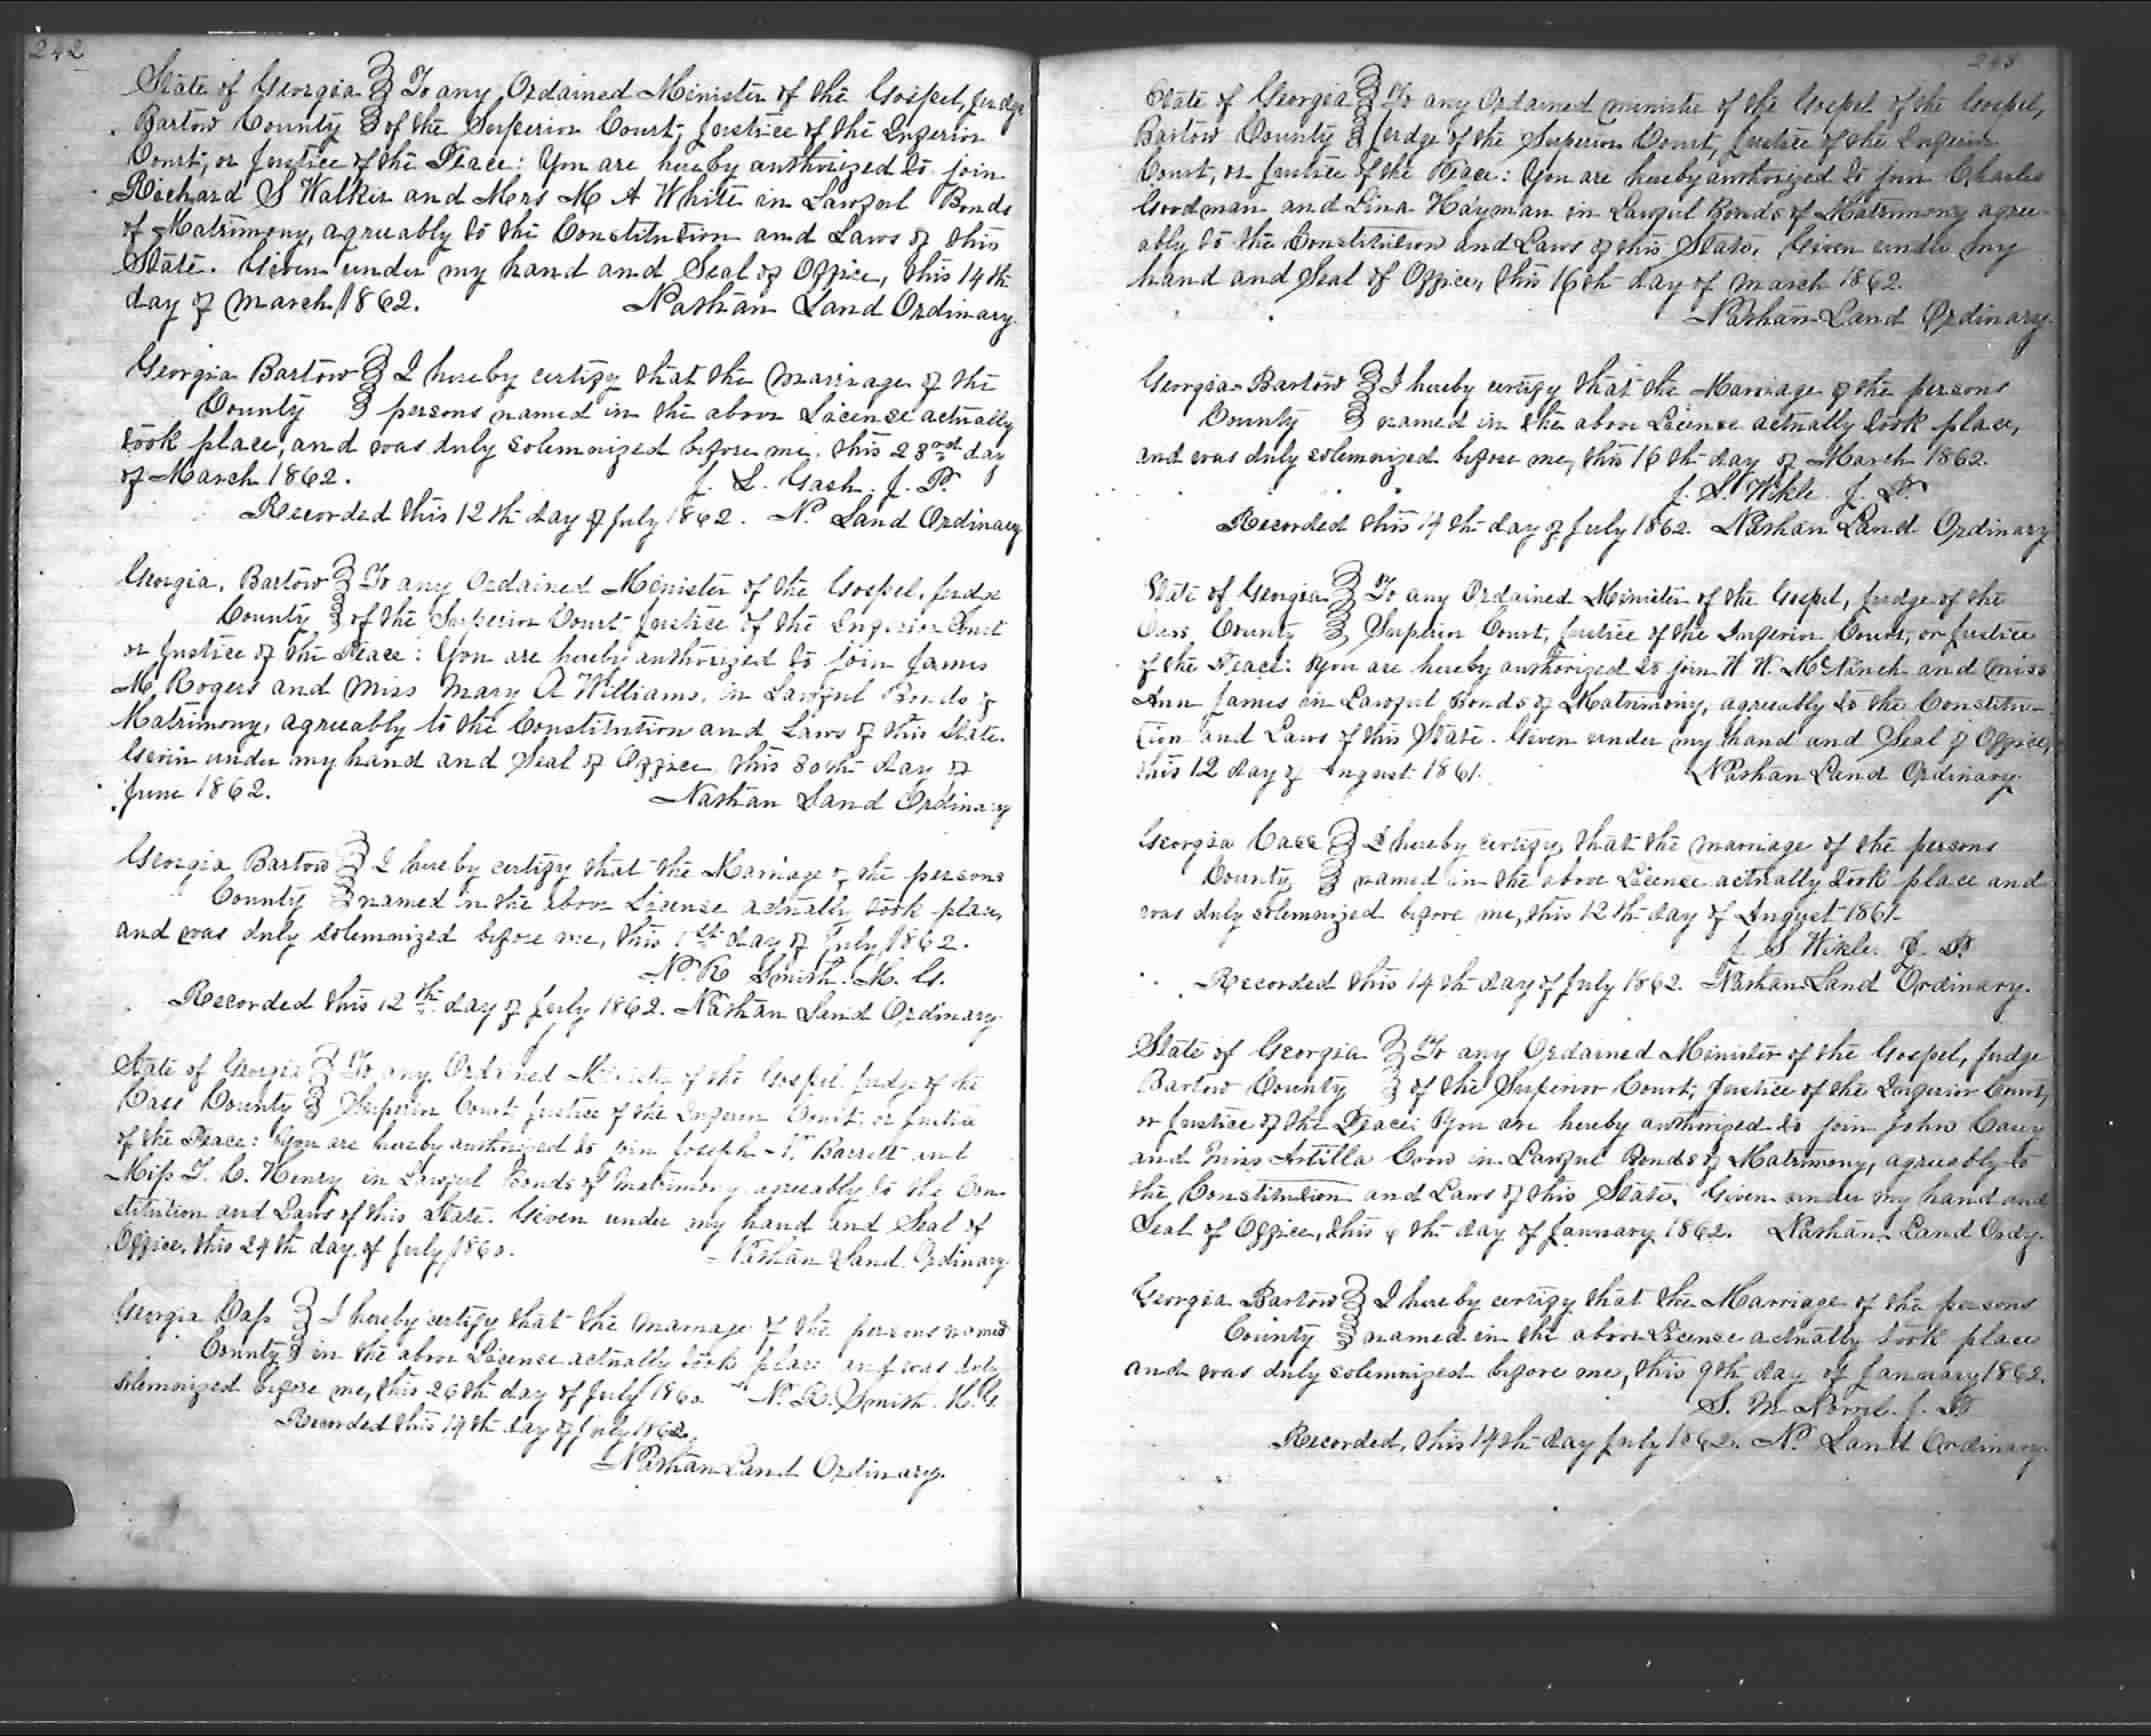 242
State of Georgia } To any Ordained Minister of the Gospel, Judge
Bartow County } of the Superior Court, Justice of the Inferior
Court, or Justice of the Peace: You are hereby authorized to join
Richard S Walker and Mrs M A White in Lawful Bonds
of Matrimony, agreeably to the Constitution and Laws of this
State. Given under my hand and Seal of Office, this 14th
day of March 1862. Nathan Land Ordinary.
Georgia Bartow } I hereby certify that the marriage of the
County } persons named in the above License actually
took place, and was duly solemnized before me, this 23rd day
of March 1862. J. L. Gash. J. P.
Recorded this 12th day of July 1862. N. Land Ordinary
Georgia, Bartow } To any Ordained Minister of the Gospel, Judge
County } of the Superior Court, Justice of the Inferior Court
or Justice of the Peace: You are hereby authorized to join James
M, Rogers and Miss Mary A Williams, in Lawful Bonds of
Matrimony, agreeably to the Constitution and Laws of this State.
Given under my hand and Seal of Office this 30th day of
June 1862. Nathan Land Ordinary
Georgia Bartow } I hereby certify that the Marriage of the persons
County } named in the above License actually took place,
and was duly solemnized before me, this 1st day of July 1862.
N. R Smith. M. G.
Recorded this 12th day of July 1862. Nathan Land Ordinary.
State of Georgia } To any Ordained Minister of the Gospel Judge of the
Cass County } Superior Court Justice of the Inferior Court or Justice
of the Peace: You are hereby authorized to join Joseph Barrett and
Miss T. C. Henry in Lawful Bonds of Matrimony agreeably to the Con-
stitution and Laws of this State. Given under my hand and Seal of
Office, this 24th day of July 1860. Nathan Land Ordinary
Georgia Cass } I hereby certify that the marriage of the persons named
County } in the above License actually took place and was duly
solemnized before me, this 26th day of July 1860 N. R. Smith. M. G.
Recorded this 14th day of July 1862.
Nathan Land Ordinary.
243
State of Georgia } To any Ordained minister of the Gospel of the Gospel,
Bartow County } Judge of the Superior Court, Justice of the Inferior
Court, or Justice of the Peace: You are hereby authorized to join Charles
Goodman and Lina Hayman in Lawful Bonds of Matrimony agree-
ably to the Constitution and Laws of this State, Given under my
hand and Seal of Office, this 16th day of March 1862.
Nathan Land Ordinary.
Georgia Bartow } I hereby certify that the Marriage of the persons
County } named in the above License actually took place,
and was duly solemnized before me, this 16th day of March 1862.
J. S. Wikle. J. P.
Recorded this 14th day of July 1862. Nathan Land Ordinary
State of Georgia } To any Ordained Minister of the Gospel, Judge of the
Cass County } Superior Court, Justice of the Inferior Court, or Justice
of the Peace: You are hereby authorized to join W. W. McNinch and Miss
Ann James in Lawful Bonds of Matrimony, agreeably to the Constitu-
tion and Laws of this State. Given under my hand and Seal of Office,
this 12 day of August 1861. Nathan Land Ordinary.
Georgia Cass } I hereby certify that the marriage of the persons
County } named in the above License actually took place and
was duly solemnized before me, this 12th day of August 1861.
J S Wikle. J. P.
Recorded this 14th day of July 1862. Nathan Land Ordinary.
State of Georgia } To any Ordained Minister of the Gospel, Judge
Bartow County } of the Superior Court, Justice of the Inferior Court,
or Justice of the Peace: You are hereby authorized to join John Casey
and Miss Artilla Coon in Lawful Bonds of Matrimony, agreeably to
the Constitution and Laws of this State, Given under my hand and
Seal of Office, this 6th day of January 1862. Nathan Land Ordy.
Georgia Bartow } I hereby certify that the Marriage of the persons
County } named in the above License actually took place
and was duly solemnized before me, this 9th day of January 1862.
S. M. J. P
Recorded, this 14th day July 1862. N. Land Ordinary.